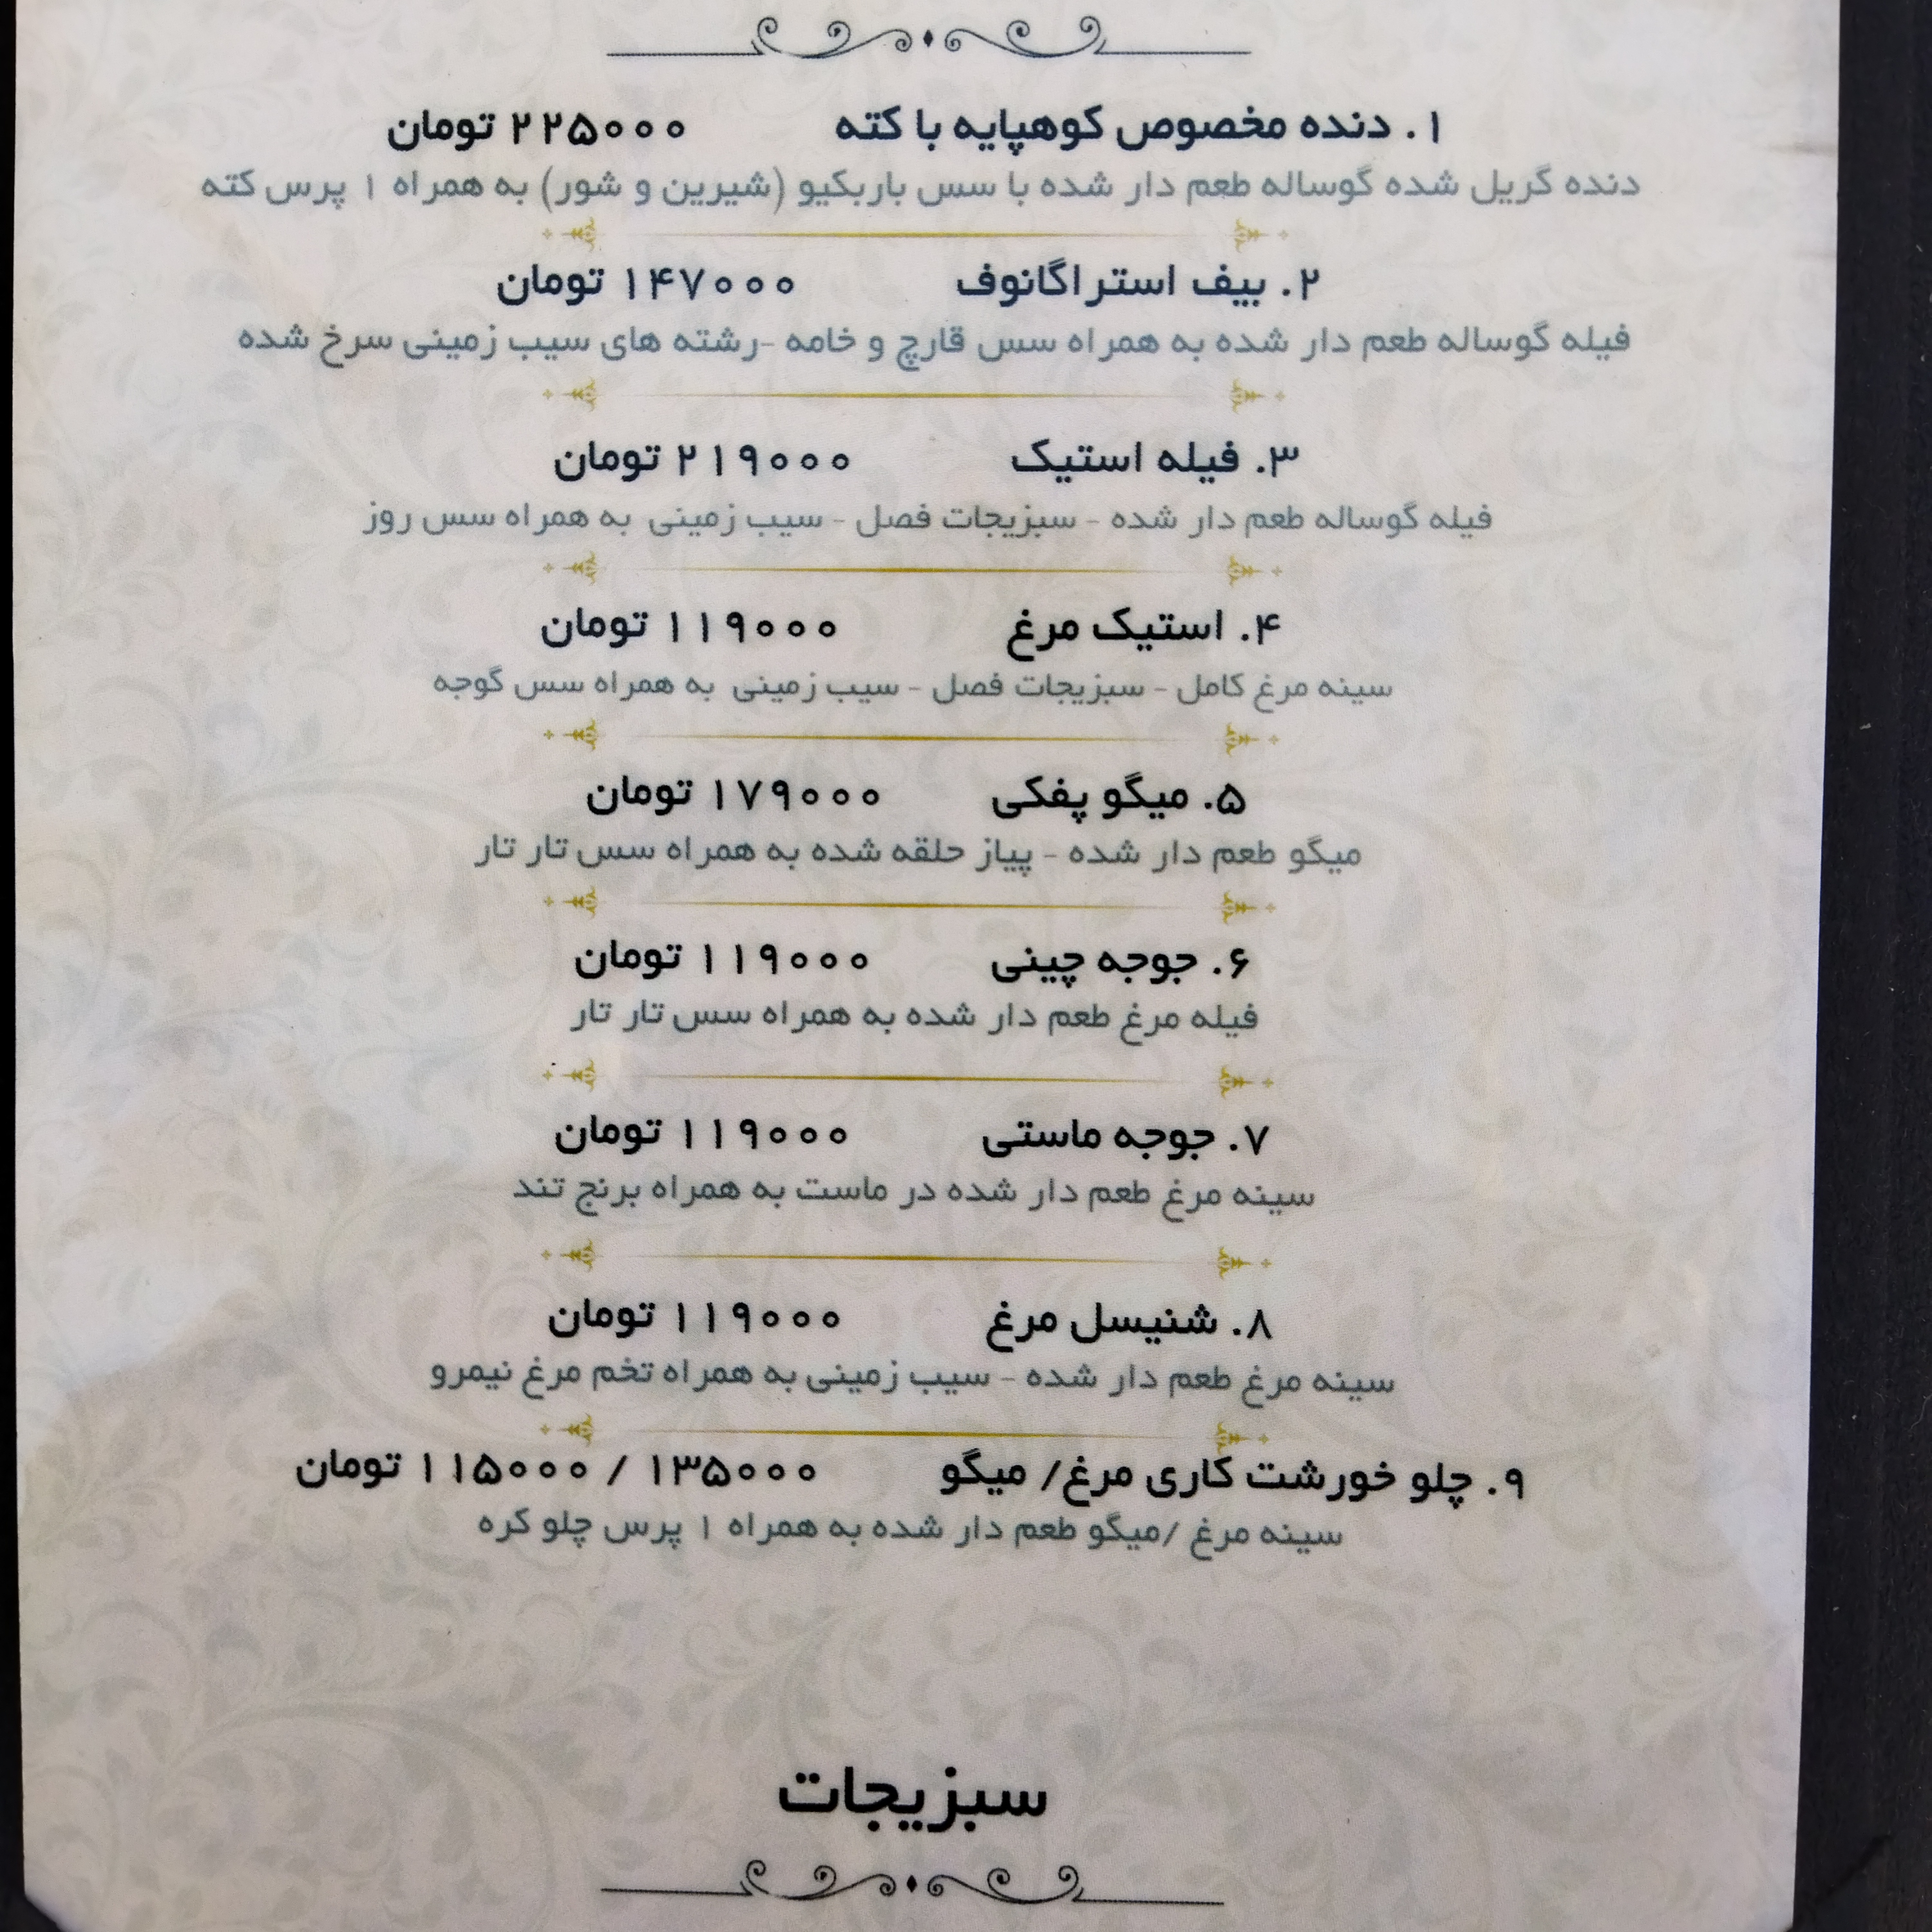 ۱. دنده مخصوص کوهپایه با کته ۲۲۵۰۰۰ تومان
دنده گریل شده گوساله طعم دار شده با سس باربکیو (شیرین و شور) به همراه ۱ پرس کته
۲. بیف استراگانوف ۱۴۷۰۰۰ تومان
فیله گوساله طعم دار شده به همراه سس قارچ و خامه -رشته های سیب زمینی سرخ شده
۳. فیله استیک ۲۱۹۰۰۰ تومان
فیله گوساله طعم دار شده - سبزیجات فصل - سیب زمینی به همراه سس روز
۴. استیک مرغ ۱۱۹۰۰۰ تومان
سینه مرغ کامل - سبزیجات فصل - سیب زمینی به همراه سس گوجه
۵. میگو پفکی ۱۷۹۰۰۰ تومان
میگو طعم دار شده - پیاز حلقه شده به همراه سس تار تار
۶. جوجه چینی ۱۱۹۰۰۰ تومان
فیله مرغ طعم دار شده به همراه سس تار تار
۷. جوجه ماستی ۱۱۹۰۰۰ تومان
سینه مرغ طعم دار شده در ماست به همراه برنج تند
۸. شنیسل مرغ ۱۱۹۰۰۰ تومان
سینه مرغ طعم دار شده - سیب زمینی به همراه تخم مرغ نیمرو
۹. چلو خورشت کاری مرغ/ میگو ۱۳۵۰۰۰ / ۱۱۵۰۰۰ تومان
سینه مرغ /میگو طعم دار شده به همراه ۱ پرس چلو کره
سبزیجات